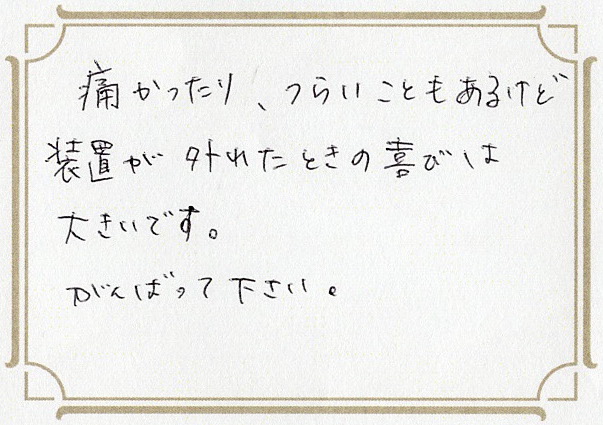 痛かったり、つらいこともあるけど
装置が外れたときの喜びは
大きいです。
がんばって下さい。